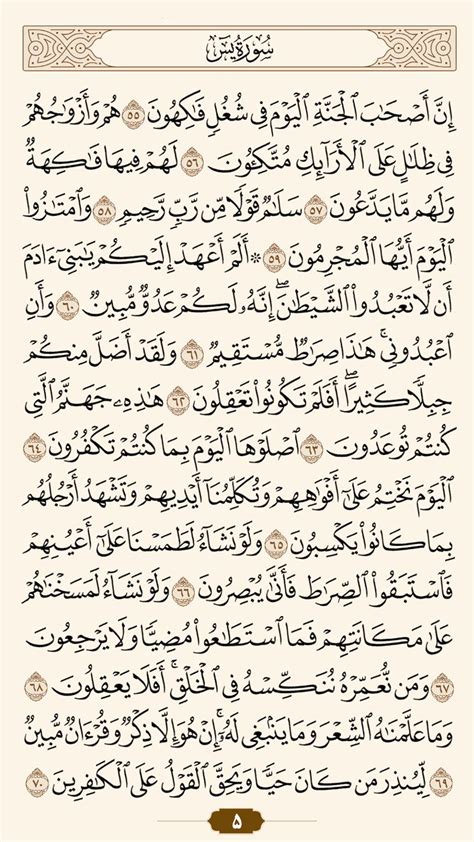 سُورَةُ يسٓ
إِنَّ أَصْحَٰبَ ٱلْجَنَّةِ ٱلْيَوْمَ فِى شُغُلٍ فَٰكِهُونَ ٥٥ هُمْ وَأَزْوَٰجُهُمْ
فِى ظِلَٰلٍ عَلَى ٱلْأَرَآئِكِ مُتَّكِـُٔونَ ٥٦ لَهُمْ فِيهَا فَٰكِهَةٌ
وَلَهُم مَّا يَدَّعُونَ ٥٧ سَلَٰمٌ قَوْلًا مِّن رَّبٍّ رَّحِيمٍ ٥٨ وَٱمْتَٰزُوا۟
ٱلْيَوْمَ أَيُّهَا ٱلْمُجْرِمُونَ ٥٩ ۞ أَلَمْ أَعْهَدْ إِلَيْكُمْ يَٰبَنِىٓ ءَادَمَ
أَن لَّا تَعْبُدُوا۟ ٱلشَّيْطَٰنَ ۖ إِنَّهُۥ لَكُمْ عَدُوٌّ مُّبِينٌ ٦٠ وَأَنِ
ٱعْبُدُونِى ۚ هَٰذَا صِرَٰطٌ مُّسْتَقِيمٌ ٦١ وَلَقَدْ أَضَلَّ مِنكُمْ
جِبِلًّا كَثِيرًا ۖ أَفَلَمْ تَكُونُوا۟ تَعْقِلُونَ ٦٢ هَٰذِهِۦ جَهَنَّمُ ٱلَّتِى
كُنتُمْ تُوعَدُونَ ٦٣ ٱصْلَوْهَا ٱلْيَوْمَ بِمَا كُنتُمْ تَكْفُرُونَ ٦٤
ٱلْيَوْمَ نَخْتِمُ عَلَىٰٓ أَفْوَٰهِهِمْ وَتُكَلِّمُنَآ أَيْدِيهِمْ وَتَشْهَدُ أَرْجُلُهُم
بِمَا كَانُوا۟ يَكْسِبُونَ ٦٥ وَلَوْ نَشَآءُ لَطَمَسْنَا عَلَىٰٓ أَعْيُنِهِمْ
فَٱسْتَبَقُوا۟ ٱلصِّرَٰطَ فَأَنَّىٰ يُبْصِرُونَ ٦٦ وَلَوْ نَشَآءُ لَمَسَخْنَٰهُمْ
عَلَىٰ مَكَانَتِهِمْ فَمَا ٱسْتَطَٰعُوا۟ مُضِيًّا وَلَا يَرْجِعُونَ
٦٧ وَمَن نُّعَمِّرْهُ نُنَكِّسْهُ فِى ٱلْخَلْقِ ۖ أَفَلَا يَعْقِلُونَ ٦٨
وَمَا عَلَّمْنَٰهُ ٱلشِّعْرَ وَمَا يَنۢبَغِى لَهُۥٓ ۚ إِنْ هُوَ إِلَّا ذِكْرٌ وَقُرْءَانٌ مُّبِينٌ
٦٩ لِّيُنذِرَ مَن كَانَ حَيًّا وَيَحِقَّ ٱلْقَوْلُ عَلَى ٱلْكَٰفِرِينَ ٧٠
٥